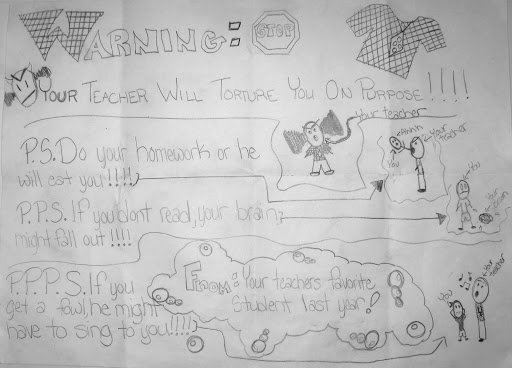 WARNING:
STOP
YOUR TEACHER WILL TORTURE YOU ON PURPOSE!!!!
Your teacher
P.S. Do your homework or he
will eat you!!!!
Ahhhh
You
Your teacher
P.P.S. If you dont read, your brain
might fall out!!!!
You
Your brain
P.P.P.S. If you
get a fawl, he might
have to sing to you!!!!
FROM: Your teachers favorite
student last year!
You
Your teacher